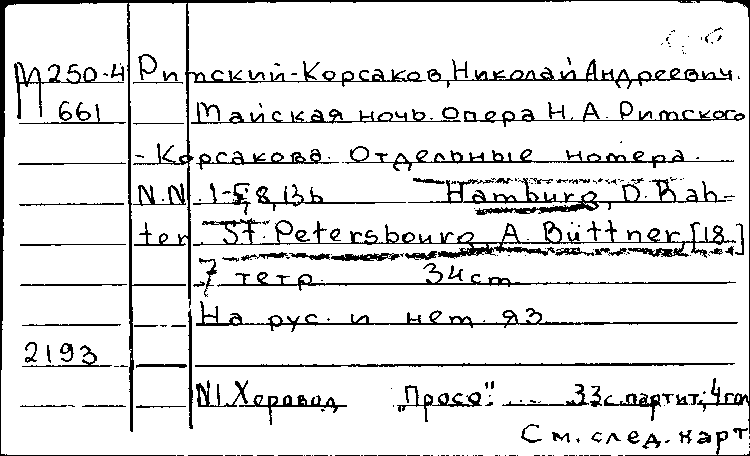 М 250-4 Римский-Корсаков, Николай Андреевич.
661 Майская ночь. Опера Н. А. Римского
-Корсакова. Отдельные номера.
N.N. 1-5, 8, 13b Hamburg, D. Rah-
ter. St. Petersbourg, A. Büttner, [18 ]
7 тетр. 34 ст.
На рус. и нем. яз.
2193
N1. Хоровод „Просо“. ... 33 с. партит., 4 гол
См. след. карт